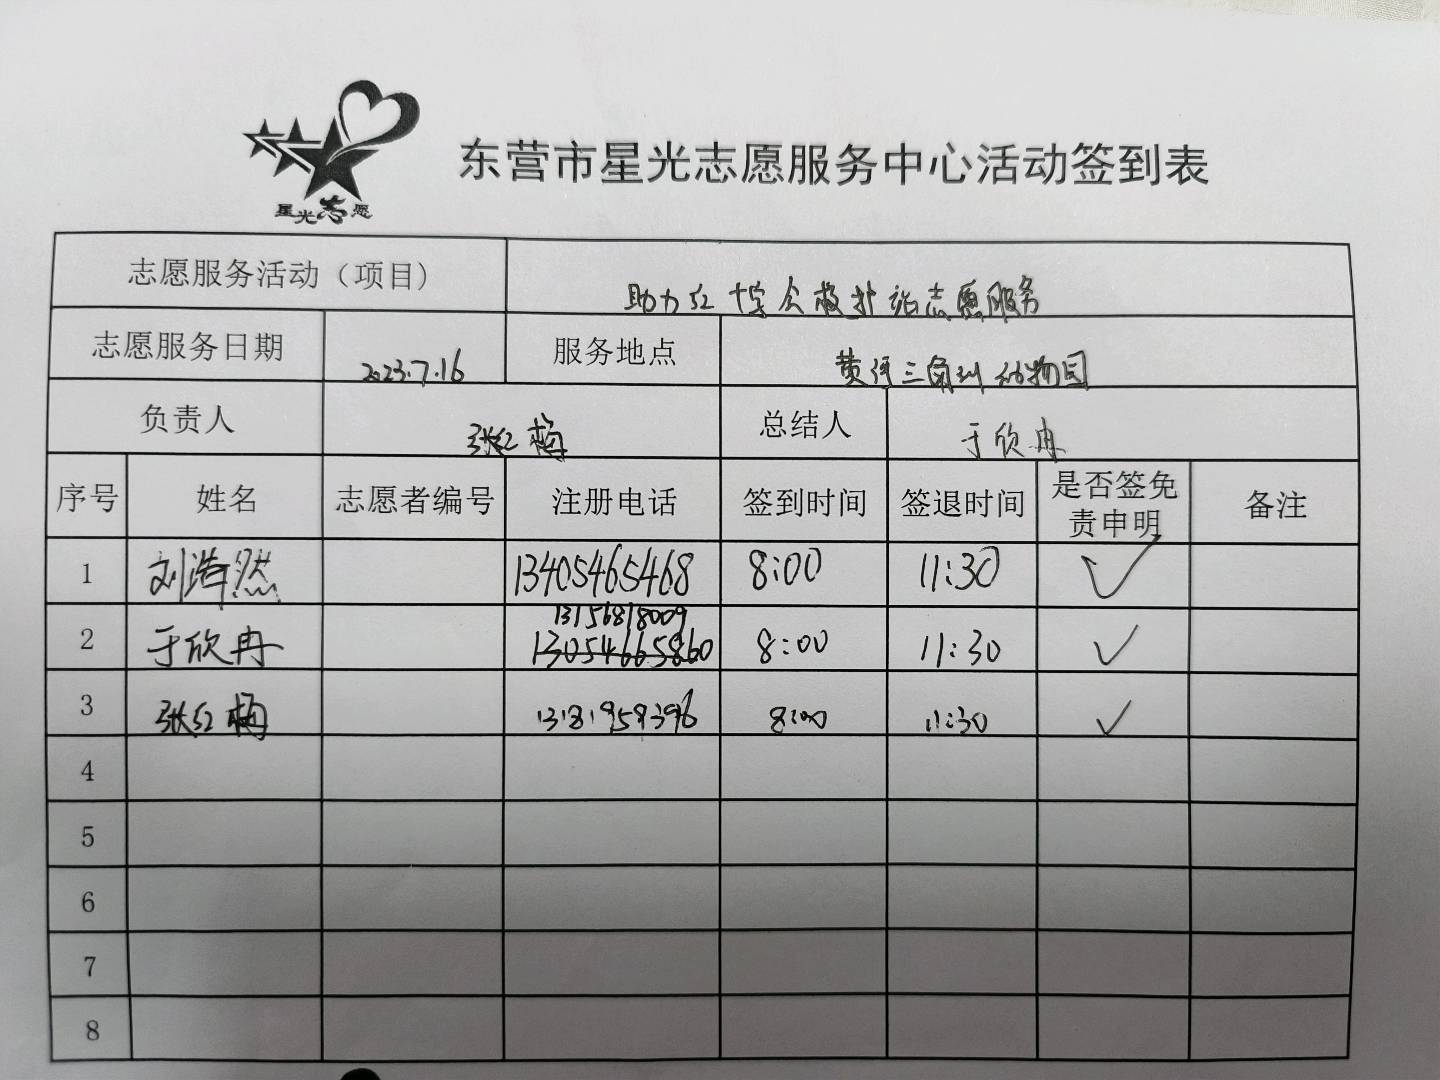 星光志愿
东营市星光志愿服务中心活动签到表
志愿服务活动（项目） 助力红十字会救护站志愿服务
志愿服务日期 2023.7.16 服务地点 黄河三角洲动物园
负责人 张红梅 总结人 于欣冉
序号 姓名 志愿者编号 注册电话 签到时间 签退时间 是否签免责申明 备注
1 刘浩然 13405465468 8:00 11:30 ✓
13156818009
2 于欣冉 13054665860 8:00 11:30 ✓
3 张红梅 13181959396 8:00 11:30 ✓
4
5
6
7
8